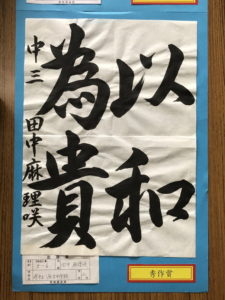 以和
為貴
中三 田中麻理咲
秀作賞